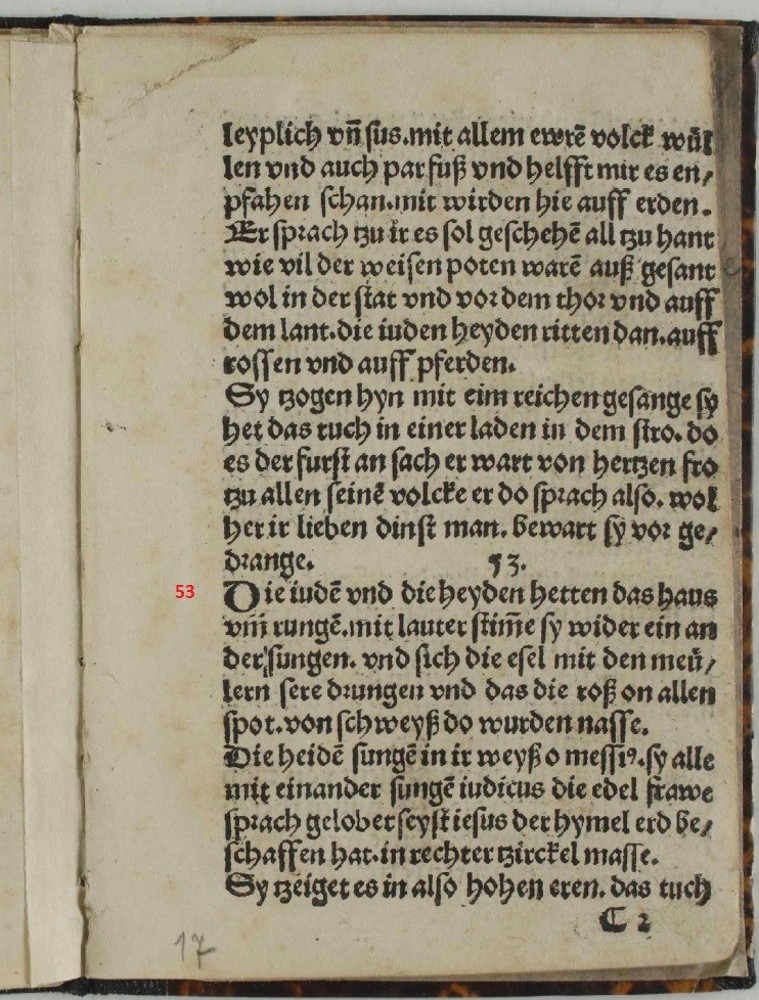 leyplich vñ sus.mit allem ewrē volck wül
len vnd auch parfuß vnd helfft mir es en/
pfahen schan.mit wirden hie auff erden.
Er sprach tzu ir es sol geschehē all tzu hant
wie vil der weisen poten warē auß gesant
wol in der stat vnd vor dem thor vnd auff
dem lant.die iuden heyden ritten dan.auff
rossen vnd auff pferden.
Sy tzogen hyn mit eim reichen gesange sy
het das tuch in einer laden in dem stro. do
es der furst an sach er wart von hertzen fro
tzu allen seinē volcke er do sprach also. wol
her ir lieben dinst man. bewart sy vor ge/
drange. 53.
53 Die iudē vnd die heyden hetten das haus
vm̄ rungē.mit lauter stim̄e sy wider ein an
der sungen. vnd sich die esel mit den meü/
lern sere drungen vnd das die roß on allen
spot.von schweyß do wurden nasse.
Die heidē sungē in ir weyß o messiꝰ.sy alle
mit einander sungē iudicus die edel frawe
sprach gelobet seyst iesus der hymel erd be/
schaffen hat.in rechter tzirckel masse.
Sy tzeiget es in also hohen eren. das tuch
C 2
17